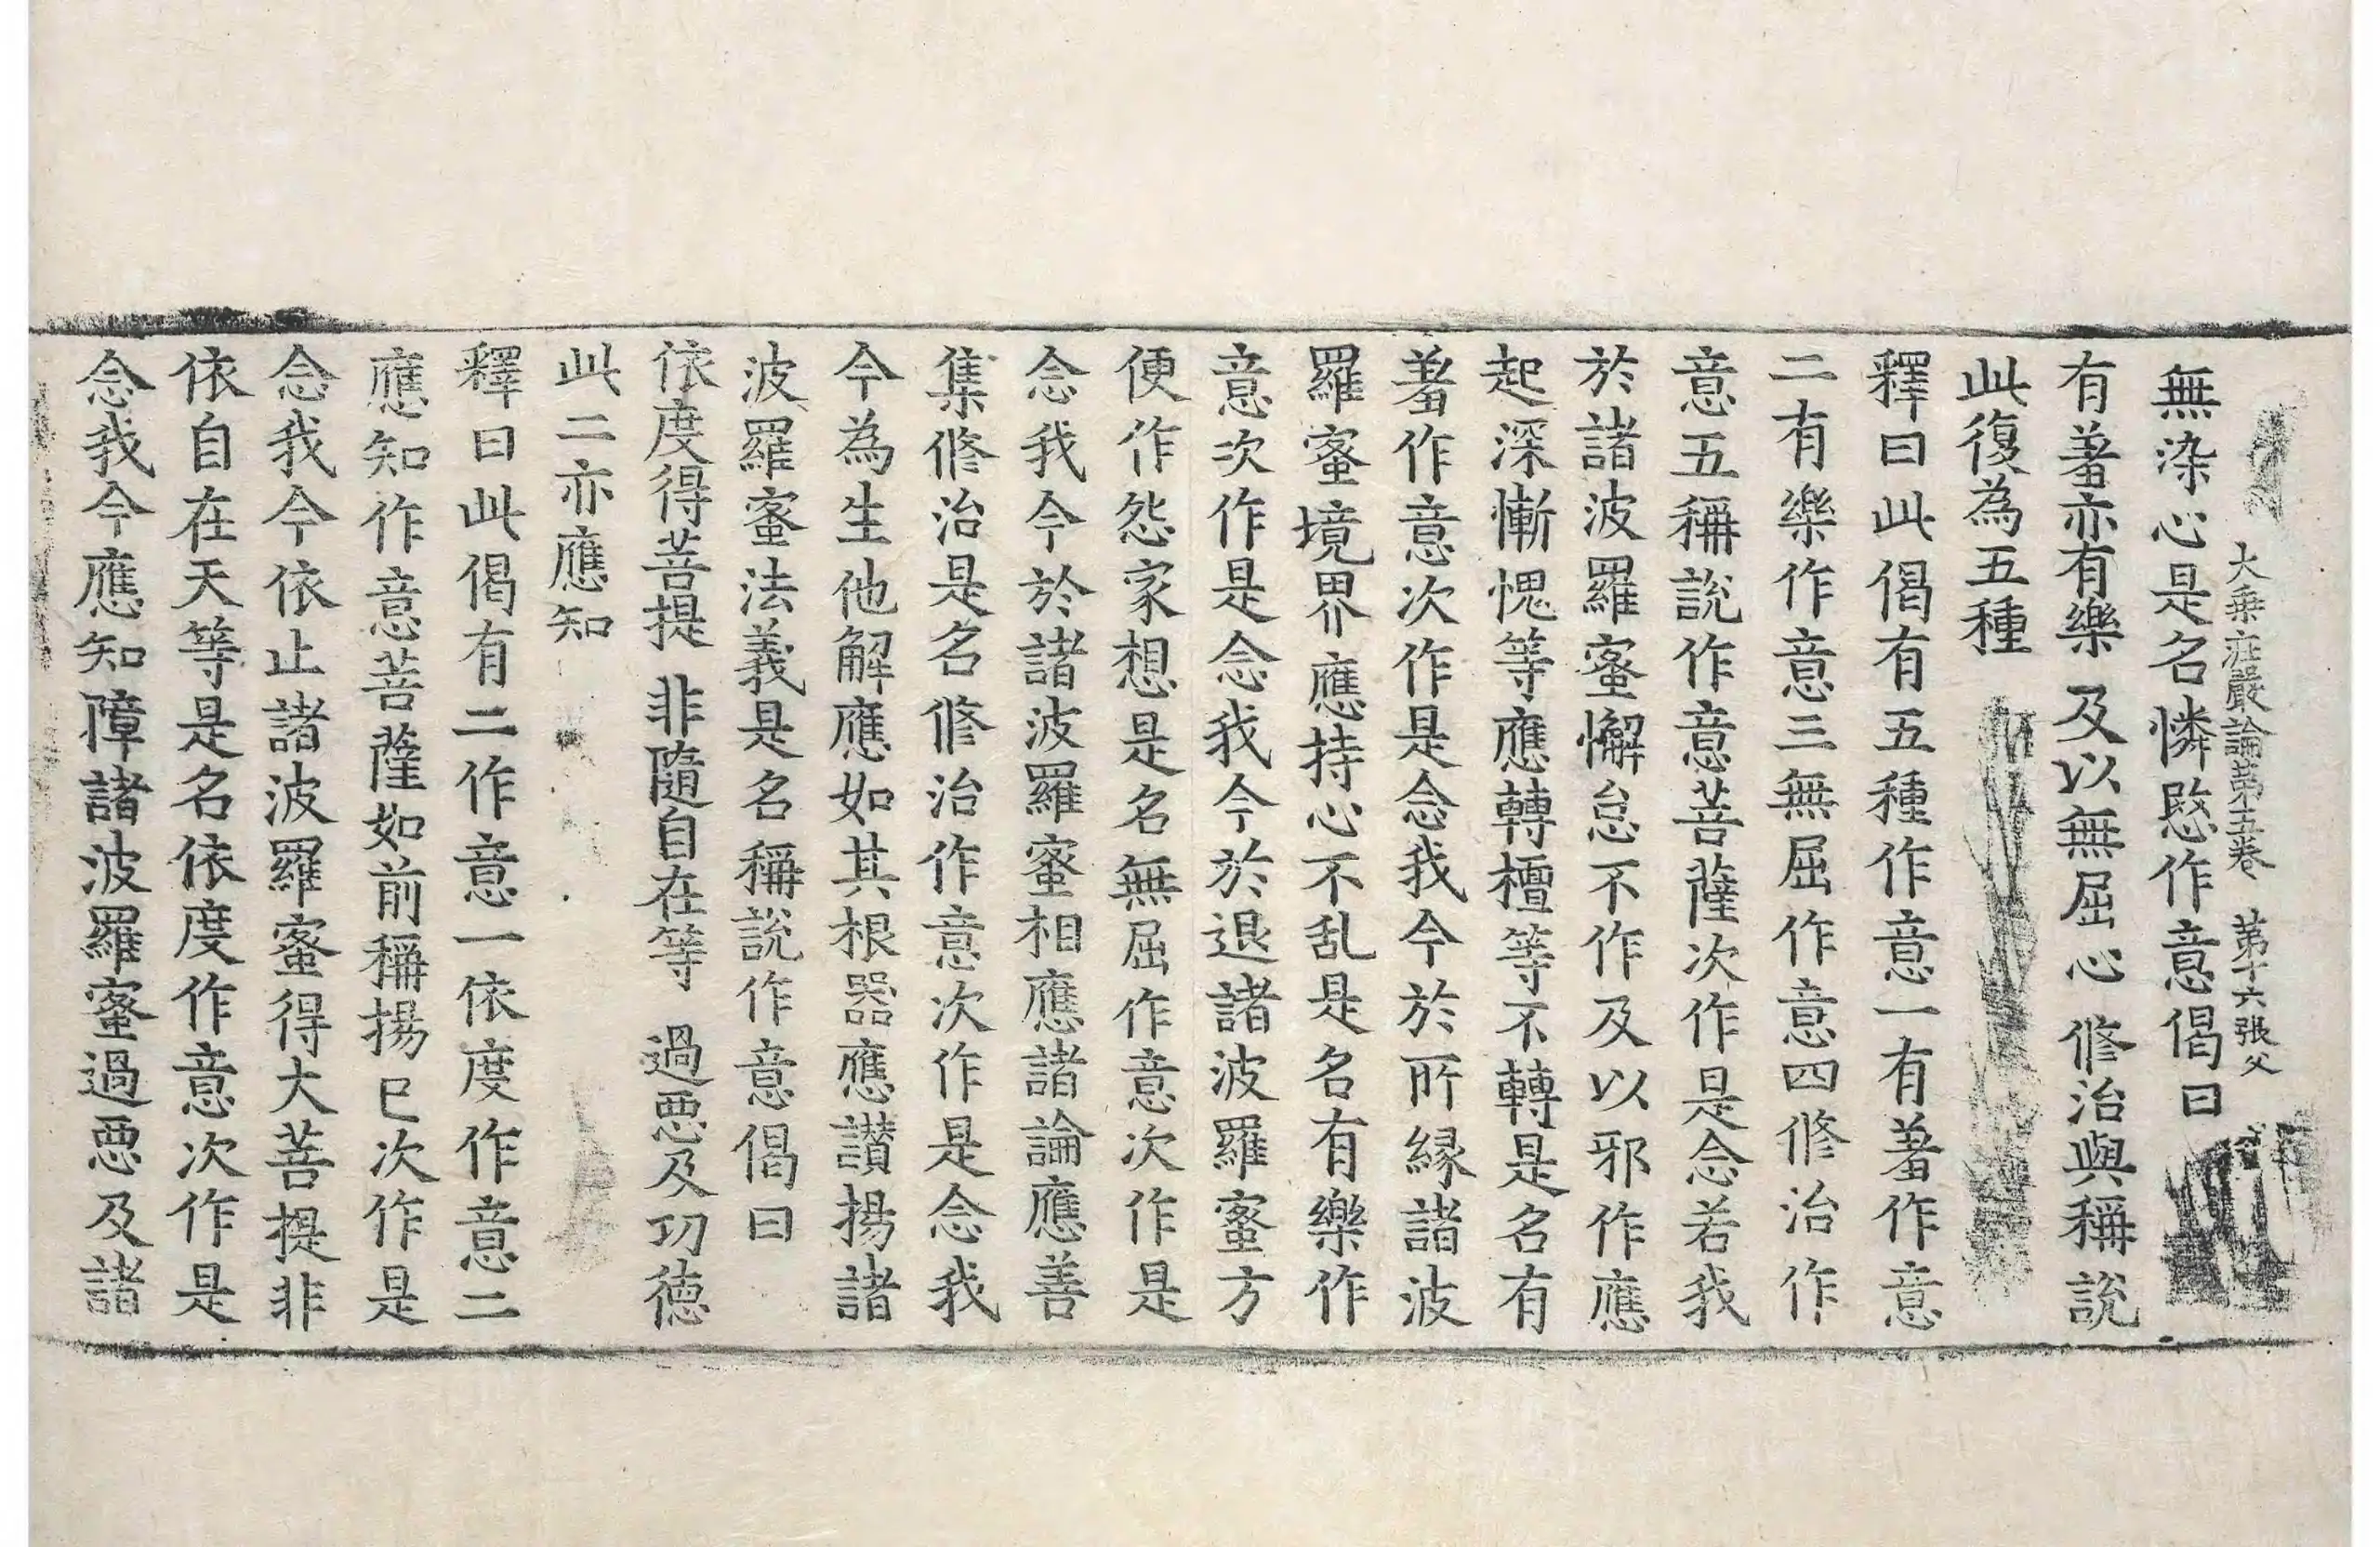 大乗莊嚴論第五卷 第十六張 父
無染心是名憐愍作意偈曰
有羞亦有樂 及以無屈心 修治與稱說
此復為五種
釋曰此偈有五種作意一有羞作意
二有樂作意三無屈作意四修治作
意五稱說作意菩薩次作是念若我
於諸波羅蜜懈怠不作及以邪作應
起深慚愧等應轉檀等不轉是名有
羞作意次作是念我今於所緣諸波
羅蜜境界應持心不乱是名有樂作
意次作是念我今於退諸波羅蜜方
便作怨家想是名無屈作意次作是
念我今於諸波羅蜜相應諸論應善
集修治是名修治作意次作是念我
今為生他解應如其根器應讃揚諸
波羅蜜法義是名稱說作意偈曰
依度得菩提 非隨自在等 過惡及功德
此二亦應知
釋曰此偈有二作意一依度作意二
應知作意菩薩如前稱揚已次作是
念我今依止諸波羅蜜得大菩提非
依自在天等是名依度作意次作是
念我今應知障諸波羅蜜過惡及諸